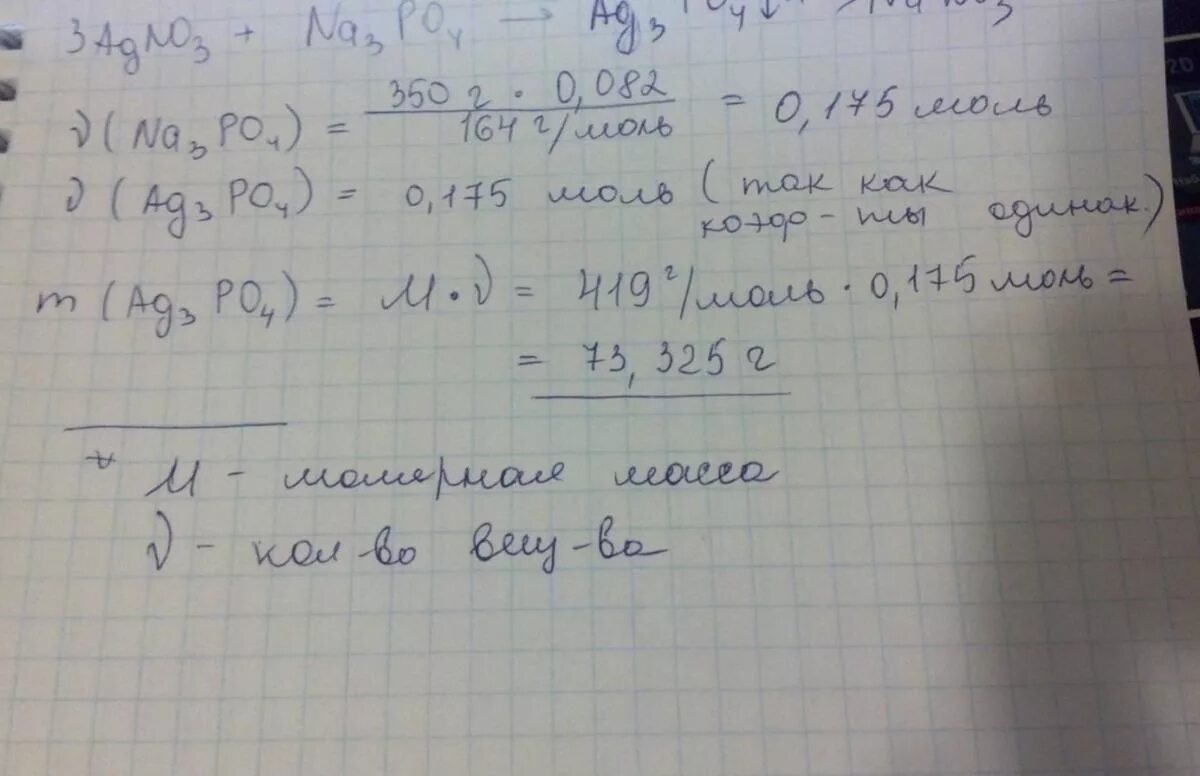 3AgNO₃ + Na₃PO₄ → Ag₃PO₄↓ + 3NaNO₃
ν(Na₃PO₄) = 350 г · 0,082 / 164 г/моль = 0,175 моль
ν(Ag₃PO₄) = 0,175 моль (так как
коэф-ты одинак.)
m(Ag₃PO₄) = M·ν = 419 г/моль · 0,175 моль =
= 73,325 г
* M - молярная масса
ν - кол-во вещ-ва